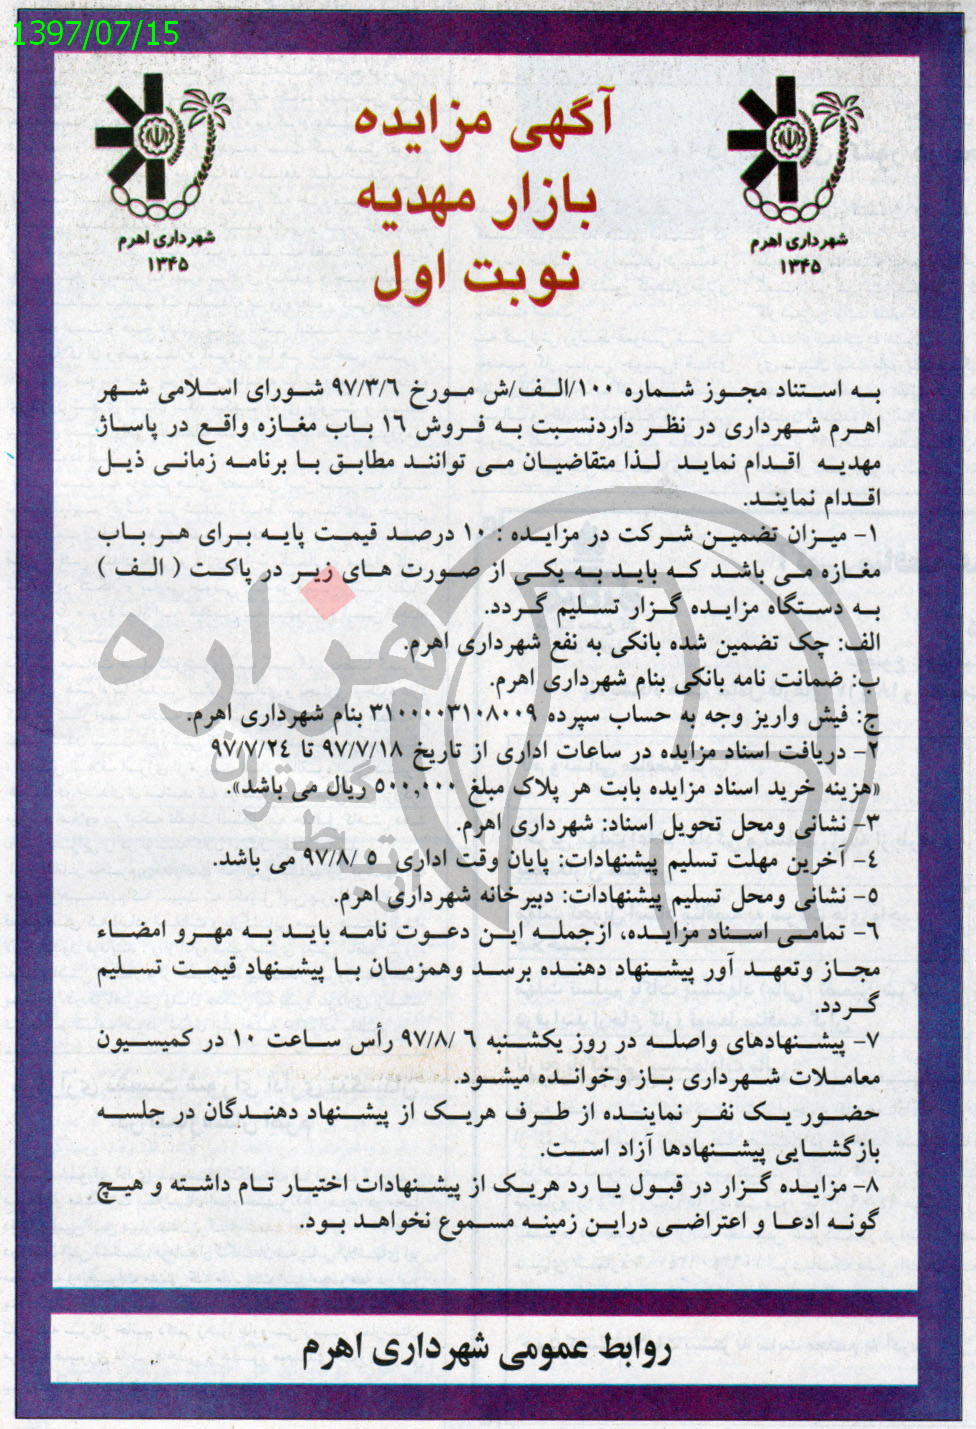 1397/07/15
آگهی مزایده
بازار مهدیه
نوبت اول
شهرداری اهرم
۱۳۴۵
شهرداری اهرم
۱۳۴۵
به استناد مجوز شماره ۱۰۰/الف/ش مورخ ۹۷/۳/۶ شورای اسلامی شهر
اهرم شهرداری در نظر داردنسبت به فروش ۱۶ باب مغازه واقع در پاساژ
مهدیه اقدام نماید لذا متقاضیان می توانند مطابق با برنامه زمانی ذیل
اقدام نمایند.
۱- میزان تضمین شرکت در مزایده : ۱۰ درصد قیمت پایه برای هر باب
مغازه می باشد که باید به یکی از صورت های زیر در پاکت ( الف )
به دستگاه مزایده گزار تسلیم گردد.
الف: چک تضمین شده بانکی به نفع شهرداری اهرم.
ب: ضمانت نامه بانکی بنام شهرداری اهرم.
ج: فیش واریز وجه به حساب سپرده ۳۱۰۰۰۰۳۱۰۸۰۰۹ بنام شهرداری اهرم.
۲- دریافت اسناد مزایده در ساعات اداری از تاریخ ۹۷/۷/۱۸ تا ۹۷/۷/۲۴
«هزینه خرید اسناد مزایده بابت هر پلاک مبلغ ۵۰۰,۰۰۰ ریال می باشد».
۳- نشانی ومحل تحویل اسناد: شهرداری اهرم.
۴- آخرین مهلت تسلیم پیشنهادات: پایان وقت اداری ۹۷/۸/ ۵ می باشد.
۵- نشانی ومحل تسلیم پیشنهادات: دبیرخانه شهرداری اهرم.
۶- تمامی اسناد مزایده، ازجمله این دعوت نامه باید به مهرو امضاء
مجاز وتعهد آور پیشنهاد دهنده برسد وهمزمان با پیشنهاد قیمت تسلیم
گردد.
۷- پیشنهادهای واصله در روز یکشنبه ۶ /۹۷/۸ رأس ساعت ۱۰ در کمیسیون
معاملات شهرداری باز وخوانده میشود.
حضور یک نفر نماینده از طرف هریک از پیشنهاد دهندگان در جلسه
بازگشایی پیشنهادها آزاد است.
۸- مزایده گزار در قبول یا رد هریک از پیشنهادات اختیار تام داشته و هیچ
گونه ادعا و اعتراضی دراین زمینه مسموع نخواهد بود.
روابط عمومی شهرداری اهرم
هزاره
گستر